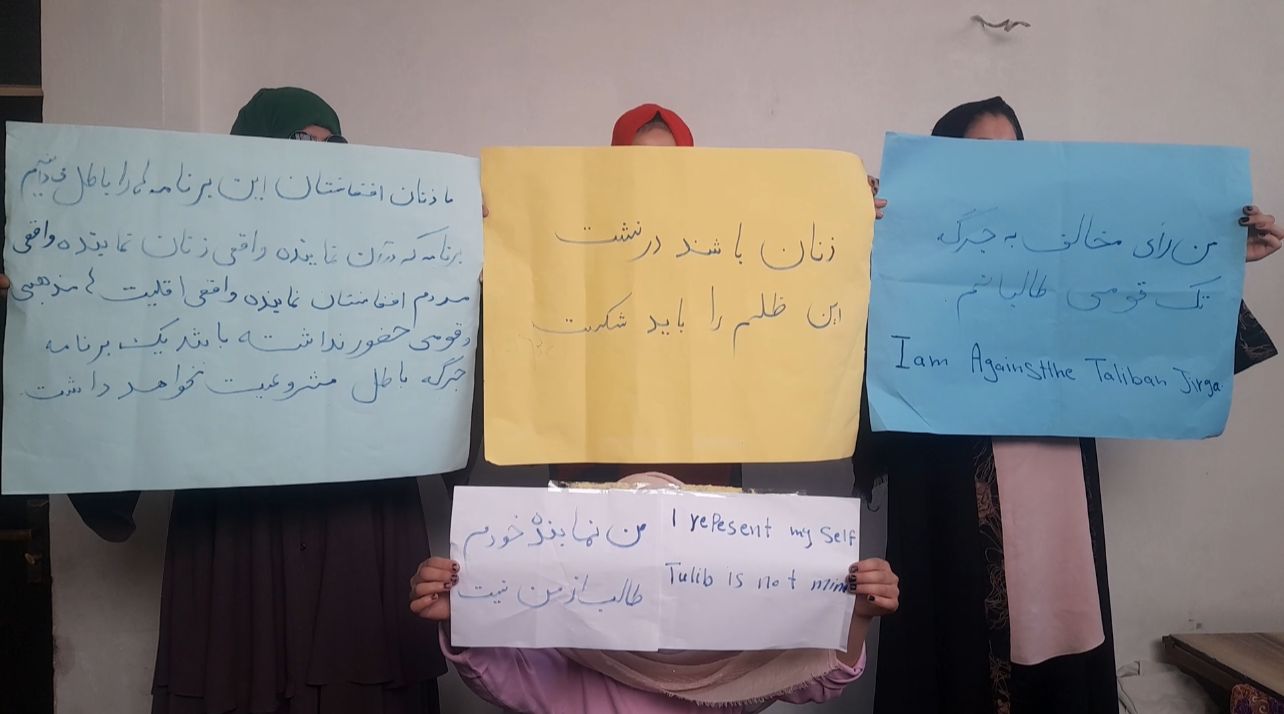 ما زنان افغانستان این برنامه ها را باطل می دانیم
برنامه که در آن نماینده واقعی زنان نماینده واقعی
مردم افغانستان نماینده واقعی اقلیت ها مذهبی
و قومی حضور نداشته باشد یک برنامه
جرگه باطل مشروعیت نخواهد داشت
زنان باشند در نشت
این ظلم را باید شکست
من رای مخالف به جرگه
تک قومی طالبانم
I am Against the Taliban Jirga
من نماینده خودم
طالب از من نیست
I repesent my self
Tulib is not mine